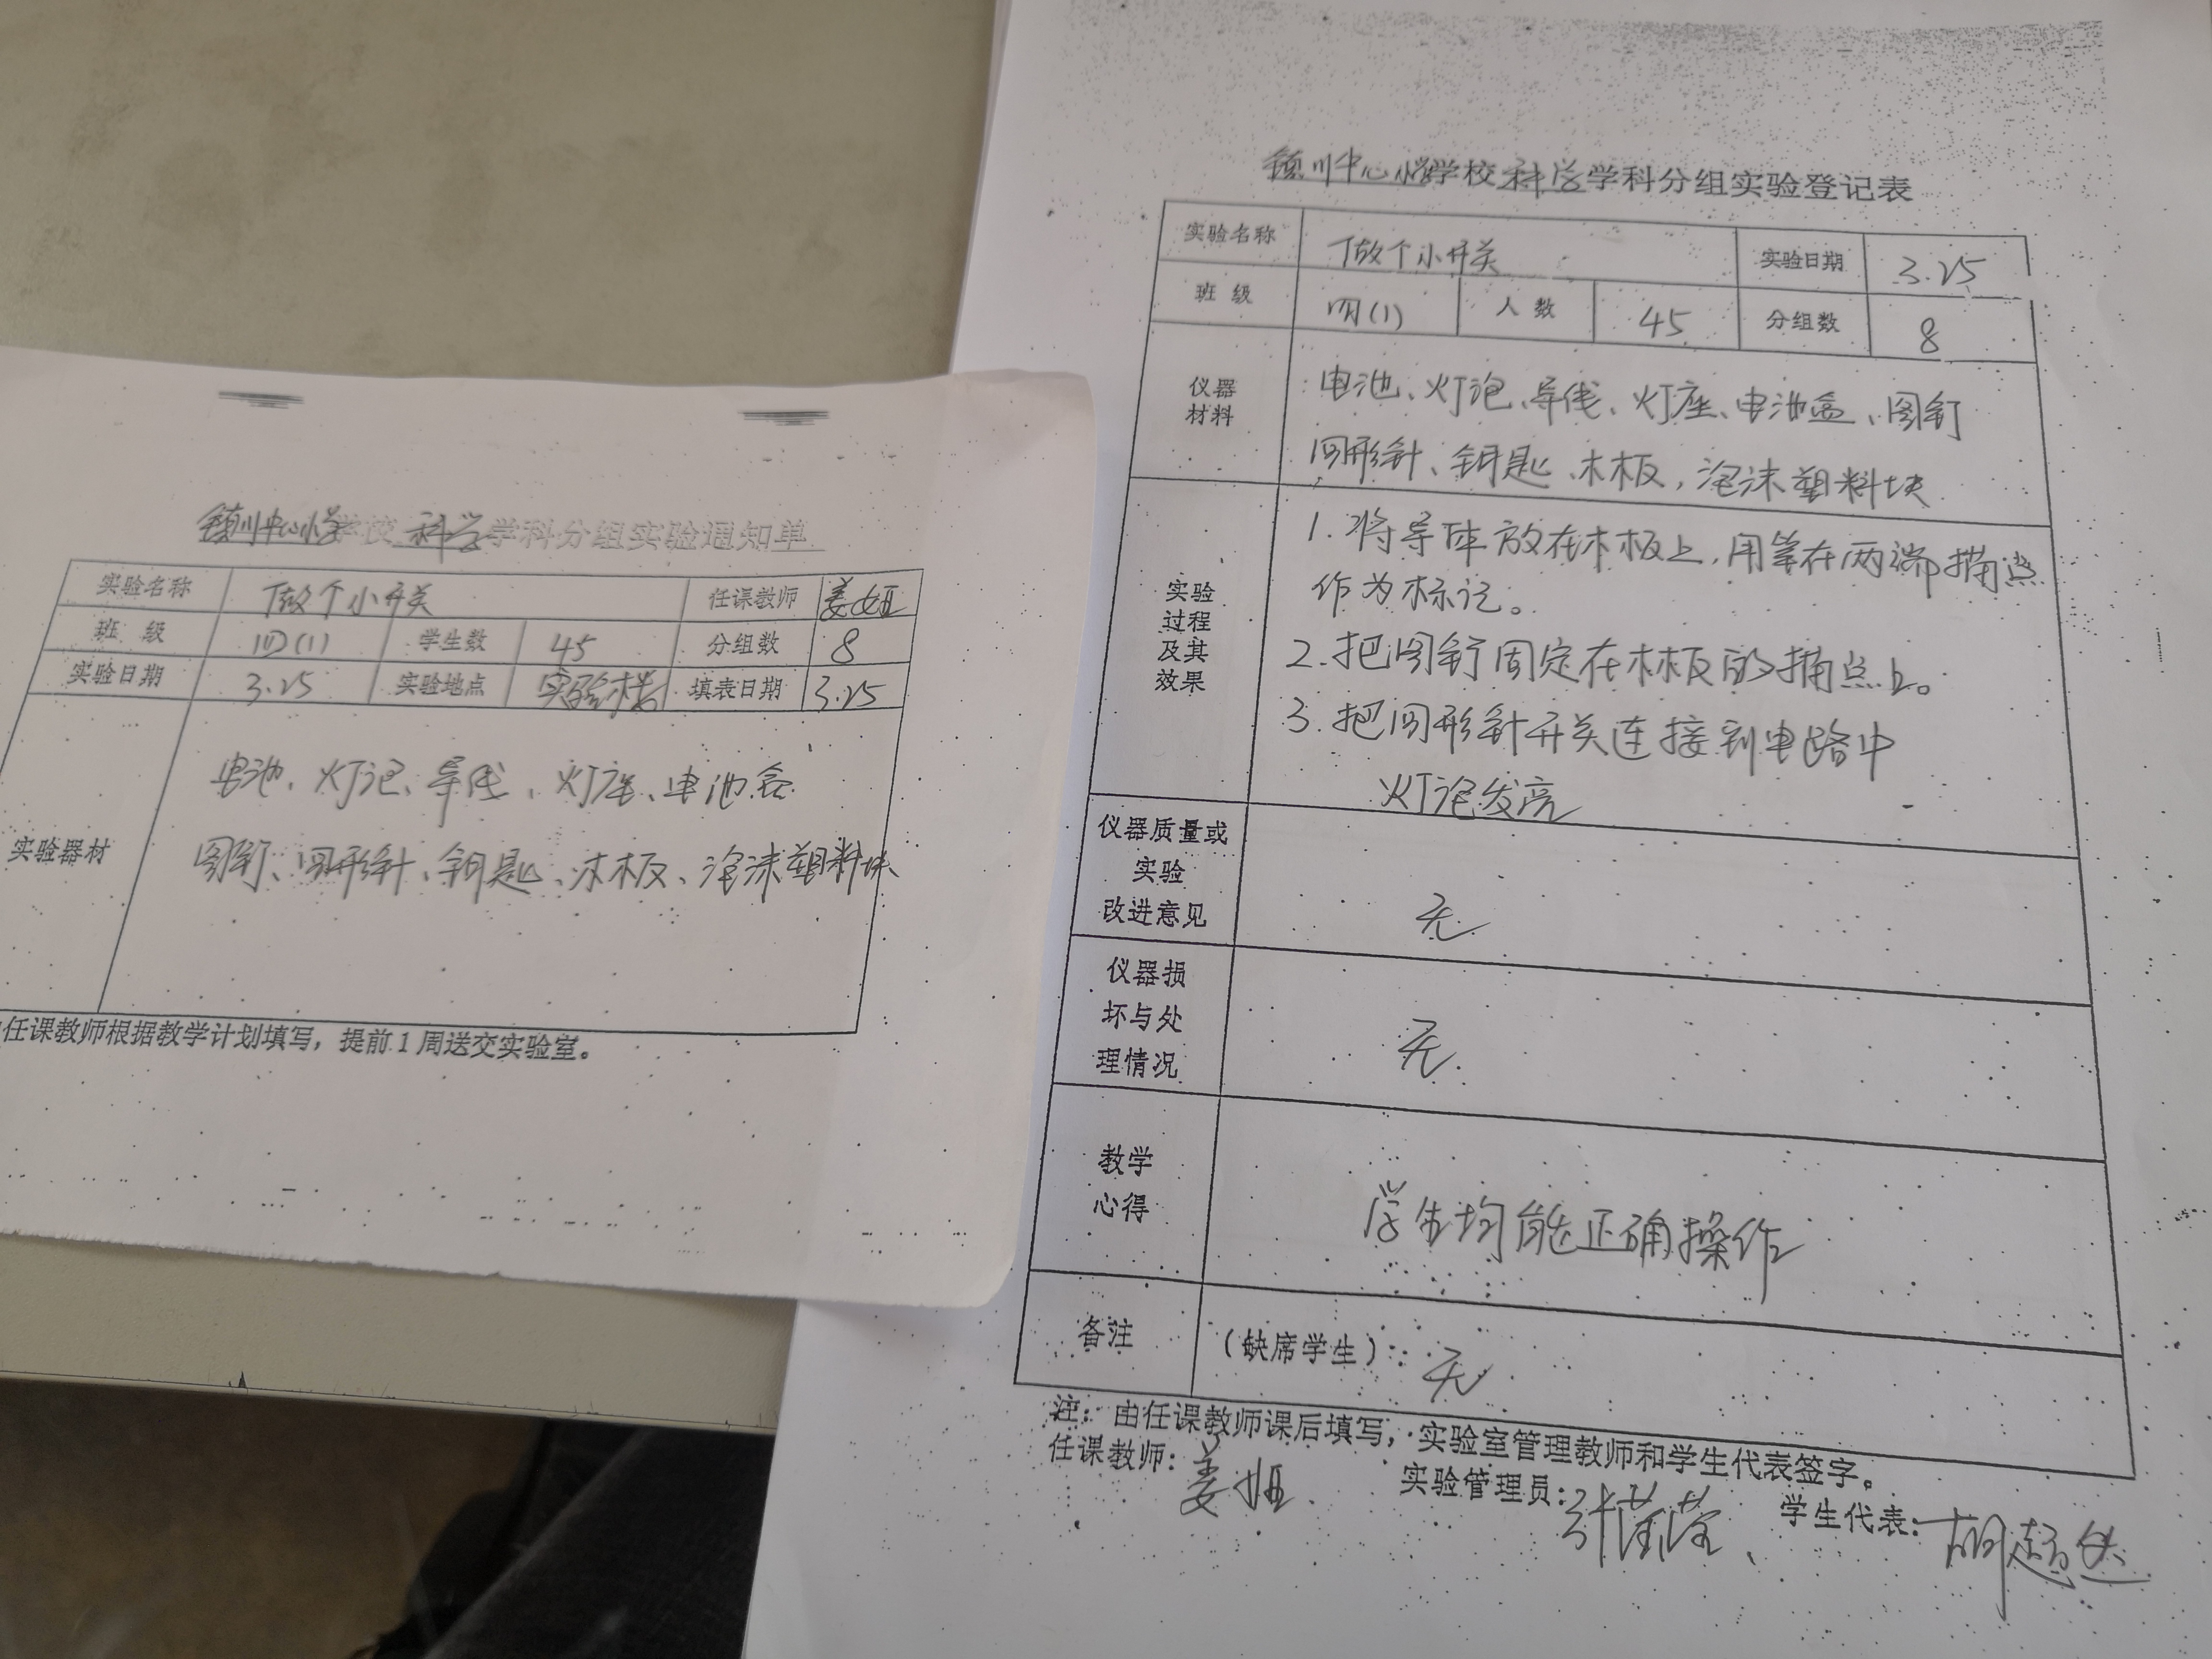 镇川中心小学学校科学学科分组实验通知单
实验名称 做个小开关 任课教师 姜娅
班级 四(1) 学生数 45 分组数 8
实验日期 3.25 实验地点 实验楼 填表日期 3.25
实验器材
电池、灯泡、导线、灯座、电池盒
图钉、回形针、钥匙、木板、泡沫塑料块
任课教师根据教学计划填写，提前1周送交实验室。
镇川中心小学学校科学学科分组实验登记表
实验名称 做个小开关 实验日期 3.25
班级 四(1) 人数 45 分组数 8
仪器材料
电池、灯泡、导线、灯座、电池盒、图钉
回形针、钥匙、木板，泡沫塑料块
实验过程及其效果
1.将导体放在木板上，用笔在两端描点
作为标记。
2.把图钉固定在木板的描点上。
3.把回形针开关连接到电路中
灯泡发亮
仪器质量或实验改进意见 无
仪器损坏与处理情况 无.
教学心得 学生均能正确操作
备注 (缺席学生)：无
注：由任课教师课后填写，实验室管理教师和学生代表签字。
任课教师：姜娅. 实验管理员： 学生代表：胡